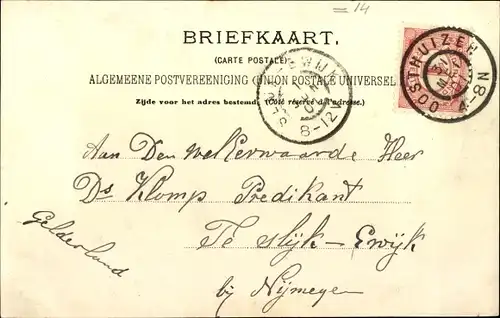 =14
BRIEFKAART.
(CARTE POSTALE)
ALGEMEENE POSTVEREENIGING (UNION POSTALE UNIVERSEL
Zijde voor het adres bestemd. (Côté réservé à l'adresse.)
OOSTHUIZEN
4-8N
8-12V
Aan Den welEerwaarde Heer
Ds Klomp Predikant
Te Slijk-Ewijk
bij Nijmegen
Gelderland